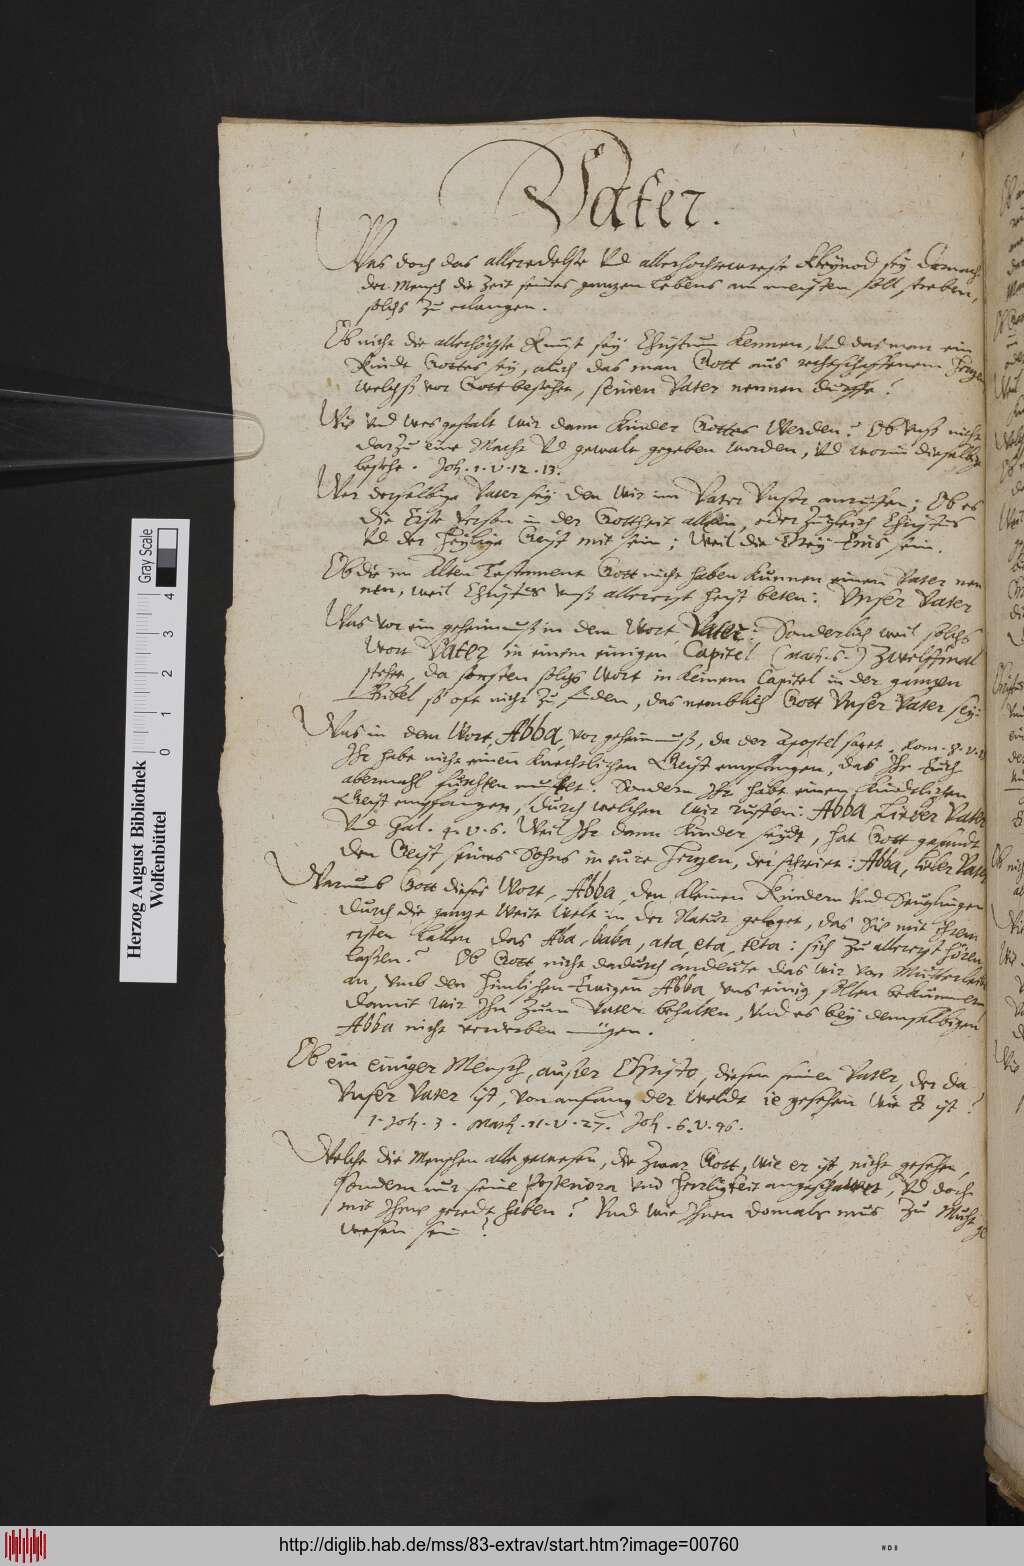 Vater.
Was doch das alleredelste Vnd allerhochwerteste Kleynod sey darnach
der Mensch die Zeit seines ganzen Lebens am meisten soll streben,
solchs zu erlangen.
Ob nicht die allerhöchste Kunst sey Christum kennen, Vnd das man ein
Kindt Gottes sey, Auch das man Gott aus rechtschaffenem Herzen
welchs vor Gott bestehe, seinen Vater nennen durffe?
Wie Vnd wes gestalt wir dann Kinder Gottes Werden? Ob Vnß nicht
darzu eine Macht Vnd gewalt gegeben worden, Vnd worin dieselbige
bestehe. Joh. 1. v. 12. 13.
Wer derselbige Vater sey den wir im Vater Vnser anruffen; Ob es
die Erste Person in der Gottheit allein, oder Zugleich Christus
Vnd der Heylige Geist mit sein; Weil die Drey Eins sein.
Ob die im Alten Testament Gott nicht haben Kunnen einen Vater nen
nen, weil Christus Vnß allererst heist beten: Vnser Vater
Was vor ein geheimnuß in dem Wort Vater: Sonderlich weil solchs
Wort Vater in einem einigen Capitel (Math. 6.) Zwelffmal
stehet, da sonsten solchs Wort in keinem Capitel in der ganzen
Bibel so oft nicht zu finden, das nemblich Gott Vnser Vater sey.
Was in dem Wort, Abba, vor geheimnuß, da der Apostel saget. Rom. 8. v. 15
Ihr habt nicht einen Knechtlichen Geist empfangen, das Ihr Euch
abermahl furchten mustet. Sondern Ihr habt einen Kindtlichen
Geist empfangen, durch welchen wir ruffen: Abba Lieber Vater
Vnd Gal. 4. v. 6. Weil Ihr dann Kinder seydt, hat Gott gesandt
den Geist seines Sohns in eure Herzen, der schreiet: Abba, lieber Vater
Warumb Gott dieses Wort, Abba, den kleinen Kindern Vnd Seuglingen
durch die ganze Weite Welt in der Natur geleget, das Sie mit Ihrem
ersten Lallen das Aba, baba, ata, eta, teta: sich zu allererst hören
laßen? Ob Gott nicht dadurch andeute das wir von Mutterleibe
an, Vmb den Himlischen Ewigen Abba vns einig sollen bekummern
damit wir Ihn zum Vater behalten, Vnd es bey demselbigen
Abba nicht verderben mögen.
Ob ein einiger Mensch, außer Christo, diesen seinen Vater, der da
Vnser Vater ist, Von anfang der Weldt ie gesehen wie Er ist?
1. Joh. 3. Math. 11. v. 27. Joh. 6. v. 46.
Welche die Menschen alle gewesen, die Zwar Gott, wie er ist, nicht gesehen,
sondern nur seine posteriora Vnd Herrligkeit angeschawet, Vnd doch
mit Ihme geredt haben? Vnd wie Ihnen domals mus zu Muth ge
wesen sein?
Herzog August Bibliothek
Wolfenbüttel
Gray Scale
0 1 2 3 4
http://diglib.hab.de/mss/83-extrav/start.htm?image=00760